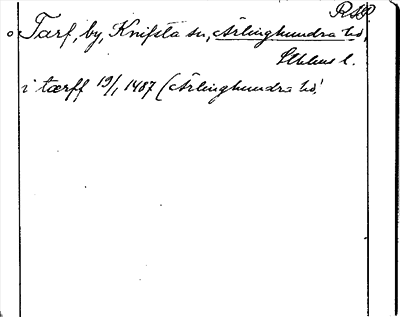 RAP
Tarf, by, Knifsta sn, Ärlinghundra hd,
Sthlms l.
i tærff 19/1 1487 (Ärlinghundra hd!